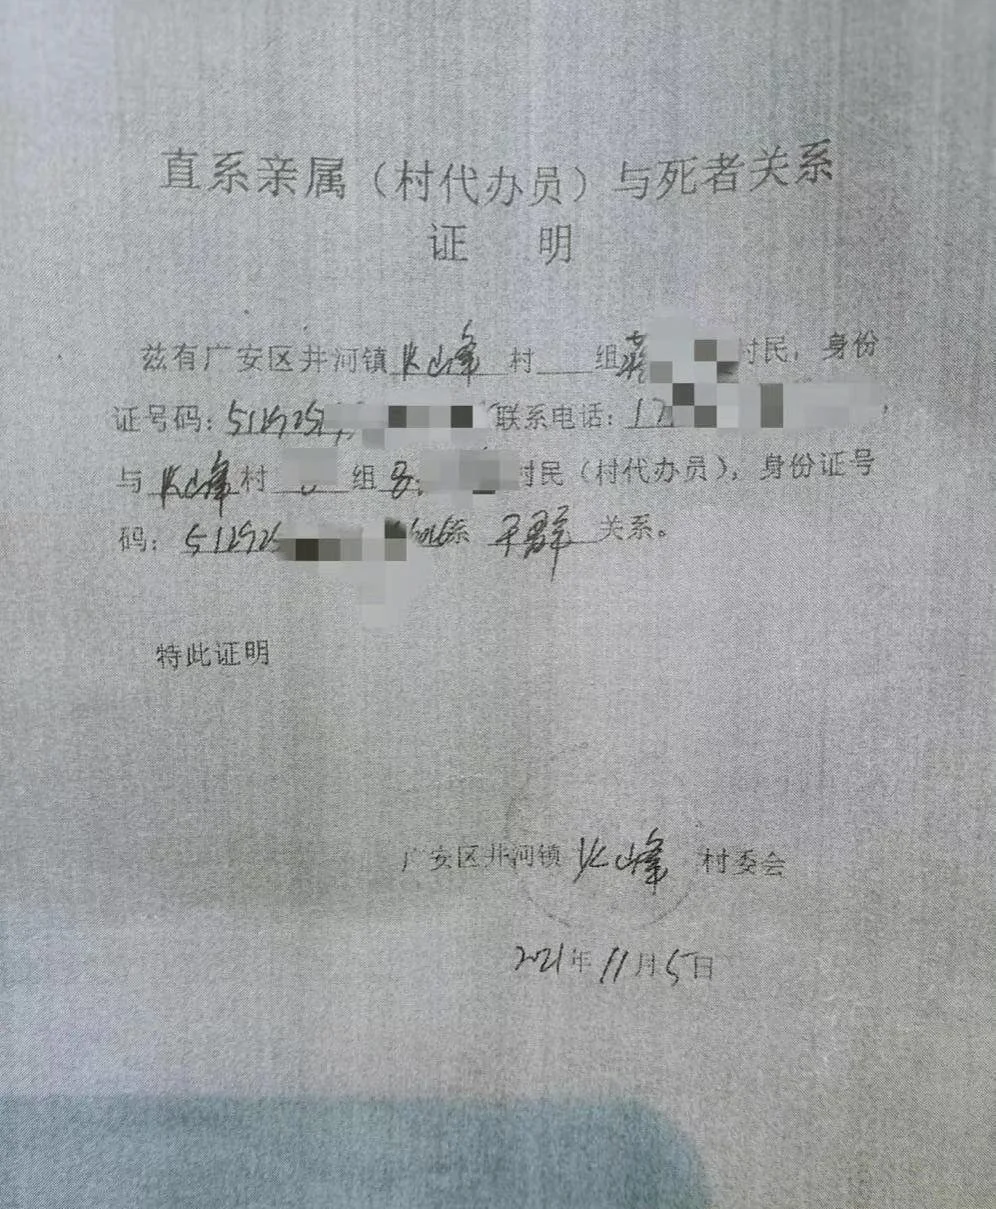 直系亲属（村代办员）与死者关系
证 明
兹有广安区井河镇 尖山峰 村 组 村民，身份
证号码：512925 联系电话：17 ，
与 尖山峰 村 组 村民（村代办员），身份证号
码：51292 系 干群 关系。
特此证明
广安区井河镇 尖山峰 村委会
2021年11月5日